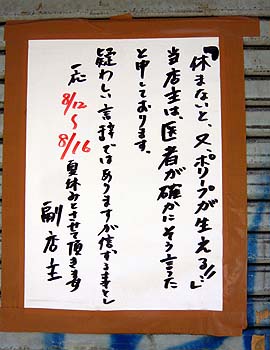 「休まないと、又、ポリープが生える!!」
当店主は、医者が確かにそう言った
と申しております。
疑わしい言辞ではありますが信ずる事とし
一応 8/12〜8/16 夏休みとさせて頂きます
副店主